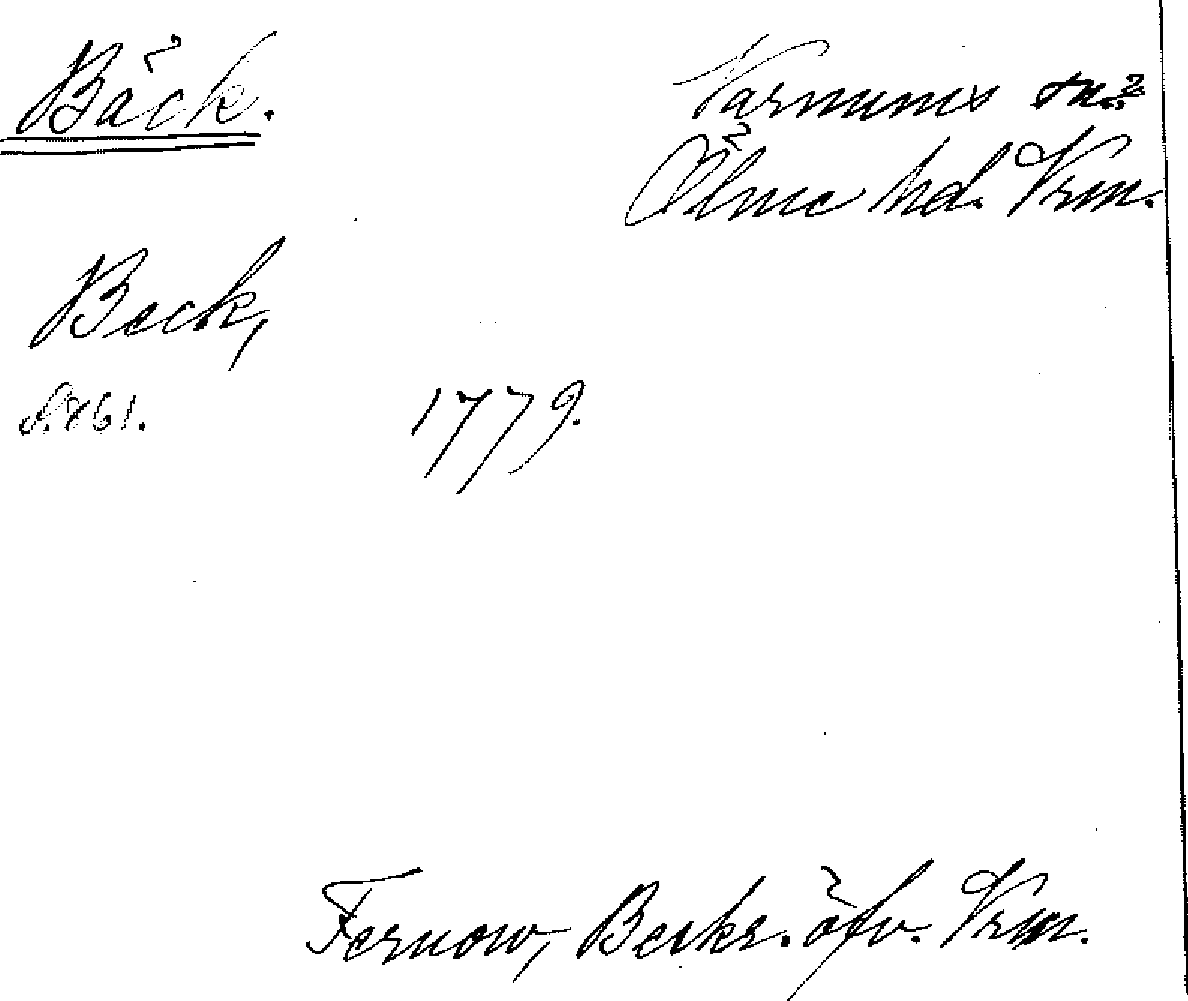 Bäck.
Varnums sn.
Ölme hd. Vrm.
Beck,
S. 861.
1779.
Fernow, Beskr. öfv. Vrm.